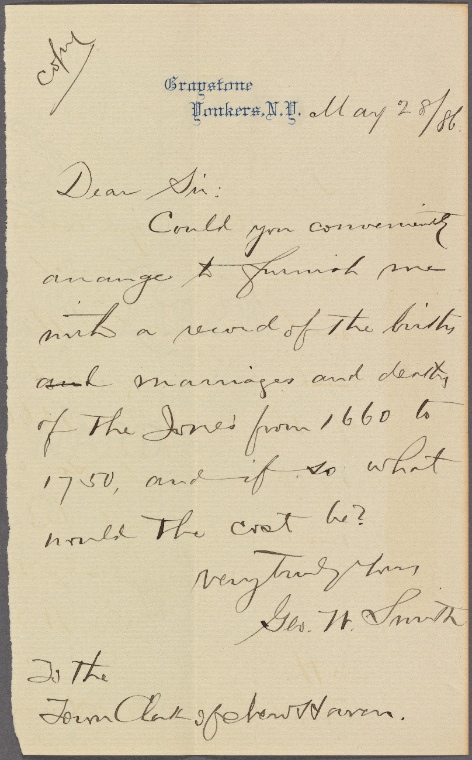 copy
Graystone
Yonkers, N.Y. May 28/86.
Dear Sir:
Could you conveniently
arrange to furnish me
with a record of the births
and marriages and deaths
of the Jones from 1660 to
1750, and if so what
would the cost be?
Very truly Yours
Geo. W. Smith
To the
Town Clerk of New Haven.